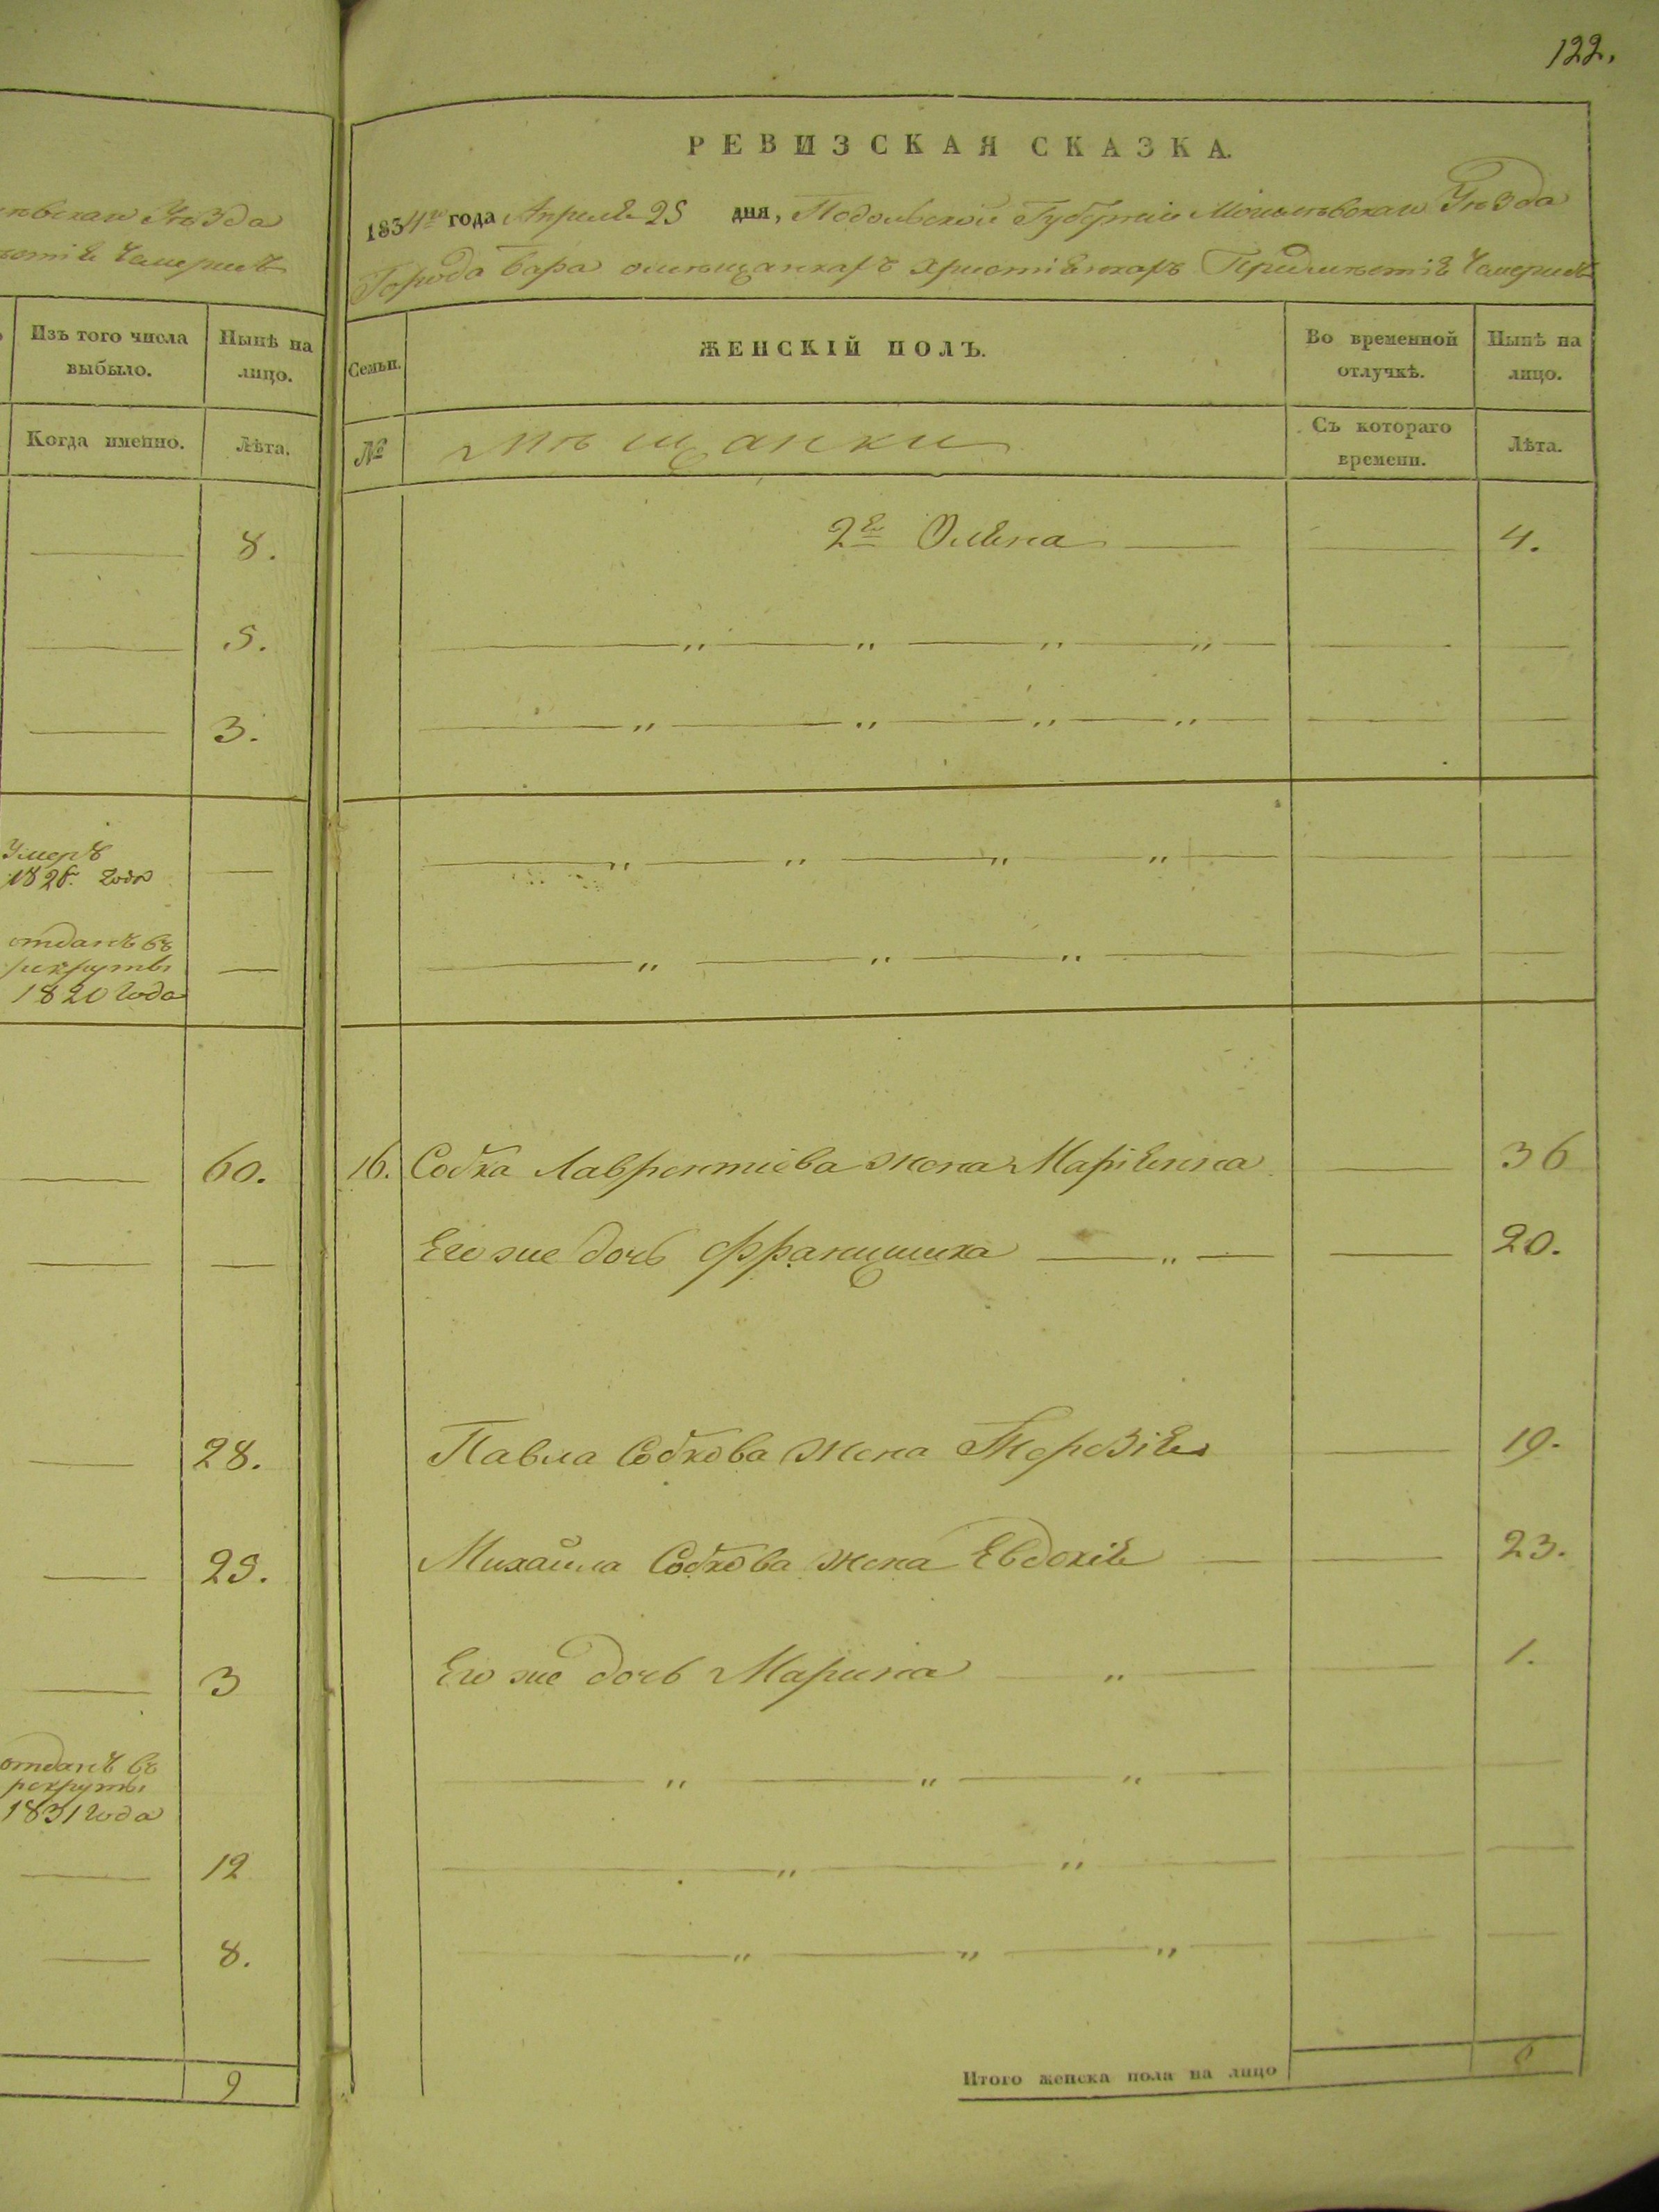 122.
Уѣзда
Чемерисъ
Изъ того числа выбыло.
Нынѣ на лицо.
Когда именно.
Лѣта.
8.
5.
3.
Умеръ
1826. Года
отданъ въ
рекруты
1820 Года
60.
28.
25.
3
отданъ въ
рекруты
1831 Года
12
8.
9
РЕВИЗСКАЯ СКАЗКА.
1834го года Апреля 25 дня, Подольской Губерніи Могилевскаго Уѣзда
Города Бара омѣщанкахъ христіянкахъ Предмѣстія Чемерисъ
Семьи.
ЖЕНСКІЙ ПОЛЪ.
Во временной отлучкѣ.
Нынѣ на лицо.
№
Мѣщанки
Съ котораго времени.
Лѣта.
2я Олена 4.
16. Собка Лаврентіева жена Маріянна 36
Его же дочь Францишка 20.
Павла Собкова жена Терезія 19.
Михайла Собкова жена Евдокія 23.
Его же дочь Марина 1.
Итого женска пола на лицо